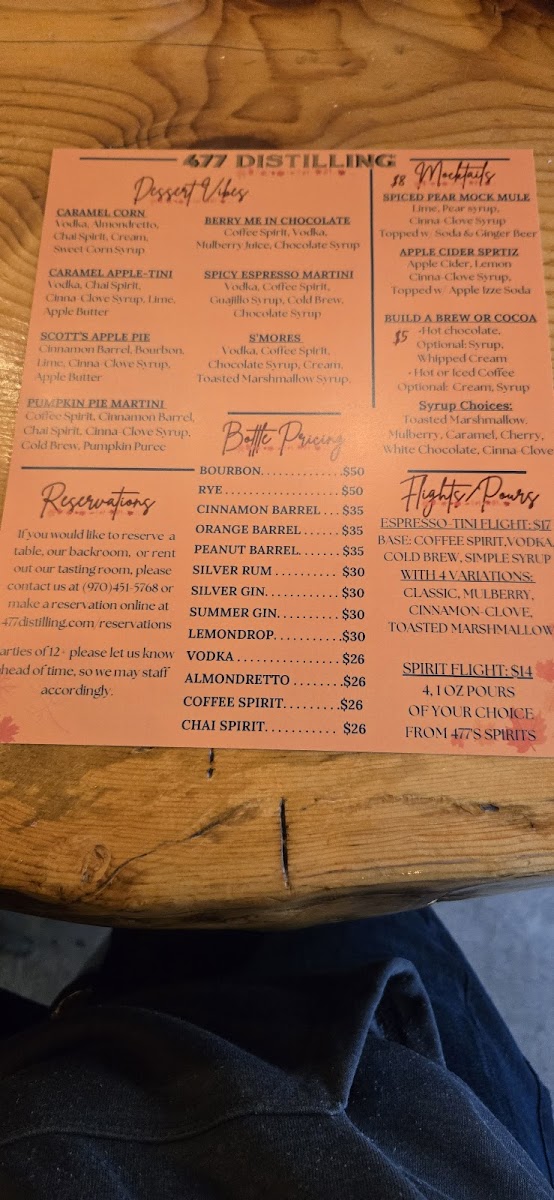 477 DISTILLING
Dessert Vibes
CARAMEL CORN
Vodka, Almondretto,
Chai Spirit, Cream,
Sweet Corn Syrup
CARAMEL APPLE-TINI
Vodka, Chai Spirit,
Cinna-Clove Syrup, Lime,
Apple Butter
SCOTT'S APPLE PIE
Cinnamon Barrel, Bourbon,
Lime, Cinna-Clove Syrup,
Apple Butter
PUMPKIN PIE MARTINI
Coffee Spirit, Cinnamon Barrel,
Chai Spirit, Cinna-Clove Syrup,
Cold Brew, Pumpkin Puree
BERRY ME IN CHOCOLATE
Coffee Spirit, Vodka,
Mulberry Juice, Chocolate Syrup
SPICY ESPRESSO MARTINI
Vodka, Coffee Spirit,
Guajillo Syrup, Cold Brew,
Chocolate Syrup
S'MORES
Vodka, Coffee Spirit,
Chocolate Syrup, Cream,
Toasted Marshmallow Syrup,
$8 Mocktails
SPICED PEAR MOCK MULE
Lime, Pear syrup,
Cinna-Clove Syrup
Topped w/ Soda & Ginger Beer
APPLE CIDER SPRTIZ
Apple Cider, Lemon
Cinna-Clove Syrup,
Topped w/ Apple Izze Soda
BUILD A BREW OR COCOA
$5 •Hot chocolate,
Optional: Syrup,
Whipped Cream
• Hot or Iced Coffee
Optional: Cream, Syrup
Syrup Choices:
Toasted Marshmallow,
Mulberry, Caramel, Cherry,
White Chocolate, Cinna-Clove
Reservations
If you would like to reserve a
table, our backroom, or rent
out our tasting room, please
contact us at (970)451-5768 or
make a reservation online at
477distilling.com/reservations
arties of 12+ please let us know
head of time, so we may staff
accordingly.
Bottle Pricing
BOURBON.............$50
RYE....................$50
CINNAMON BARREL...$35
ORANGE BARREL......$35
PEANUT BARREL......$35
SILVER RUM..........$30
SILVER GIN...........$30
SUMMER GIN.........$30
LEMONDROP..........$30
VODKA................$26
ALMONDRETTO.......$26
COFFEE SPIRIT........$26
CHAI SPIRIT...........$26
Flights/Pours
ESPRESSO-TINI FLIGHT: $17
BASE: COFFEE SPIRIT, VODKA,
COLD BREW, SIMPLE SYRUP
WITH 4 VARIATIONS:
CLASSIC, MULBERRY,
CINNAMON-CLOVE,
TOASTED MARSHMALLOW
SPIRIT FLIGHT: $14
4, 1 OZ POURS
OF YOUR CHOICE
FROM 477'S SPIRITS